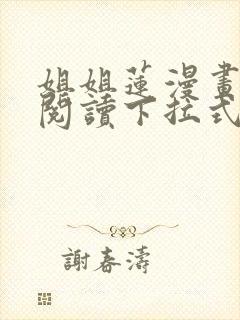 姐姐蓮漫畫
閱讀下拉式
謝春濤